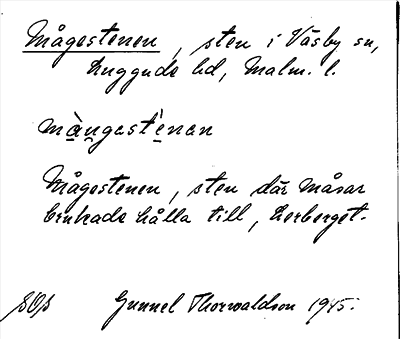 Mågestenen, sten i Väsby sn,
Luggude hd, Malm. l.
må̀n̯gastè̱nan
Mågestenen, sten där måsar
brukade hålla till, Lerberget.
Gunnel Thorwaldson 1945.